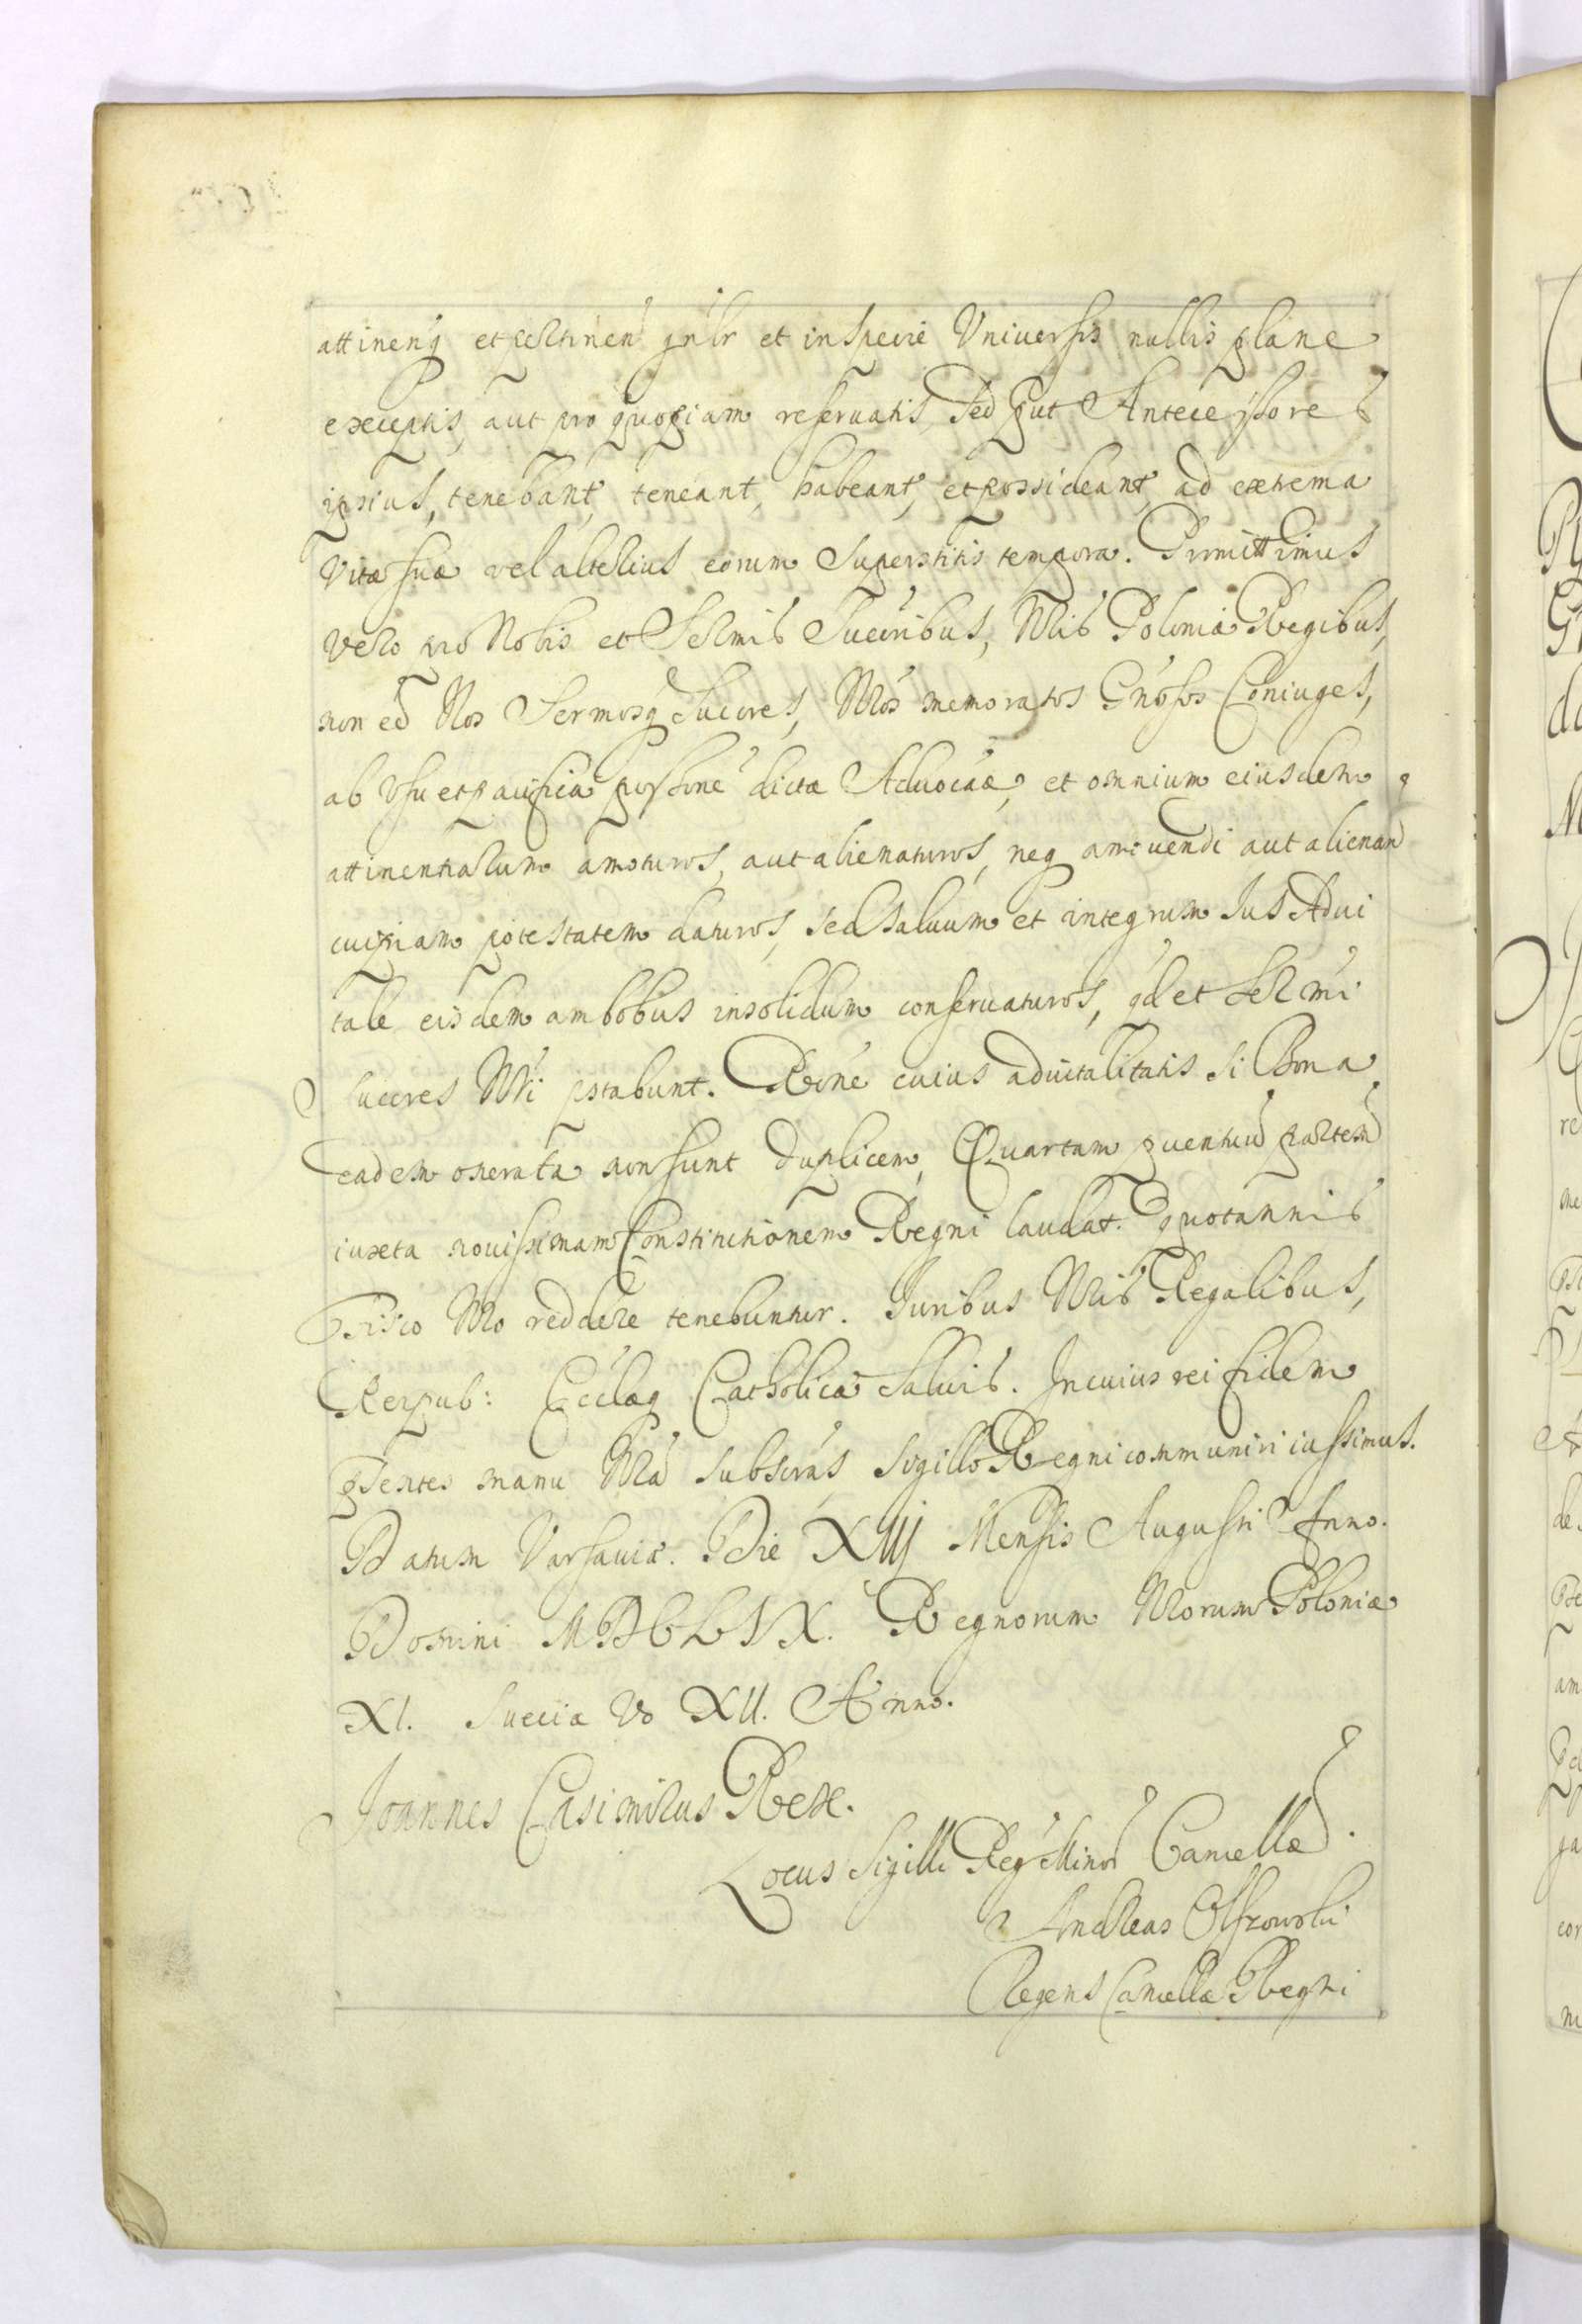 attinenq et pertinen gnlr et in specie Universis nullis plane
exceptis, aut pro quopiam reservatis, Sed put Antecessores
ipsius, tenebant, teneant, habeant, et possideant, ad extrema
Vitæ suæ vel alterius eorum superstitis tempora. Promittimus
vero pro Nobis et Sermis Succribus, Nris Poloniæ Regibus,
non eē Nos Sermosq Succres, Nros memoratos Gnosos Coniuges,
ab Usu et paccifica possione dictæ Advocaæ, et omnium eiusdem
attinentiarum amoturos, aut alienaturos, neq amovendi aut alienan
cuipiam potestatem daturos, sed salvum et integrum Ius Advi
tale eisdem ambobus insolidum conservaturos, qd et Sermi
succres Nri pstabunt. Róne cuius advitalitatis si Bona
eadem onerata non sunt duplicem, Quartam pventuū partem
iuxta novissimam Constitutionem Regni laudat. quotannis
Fisco Nro reddere tenebuntur. Iuribus Nris Regalibus,
Reipub: Ecclæq Catholicæ salvis. In cuius rei fidem
psentes manu Nra subscras, sigillo Regni communiri iussimus.
Datum Varsaviæ. Die XIII Mensis Augusti Anno.
Domini MDCLIX. Regnorum Nrorum Poloniæ
XI. Sueciæ Vo XII. Anno.
Joannes Casimirus Rex.
Locus Sigilli Reg Minor Cancellæ.
Andreas Olszowski
Regens Cancellæ Regni